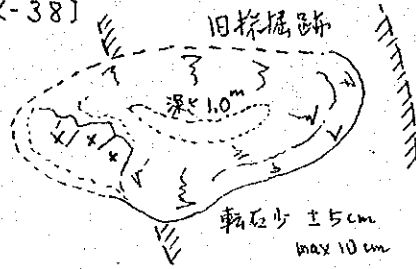 -38]
旧採掘跡
深さ1.0m
転石少 ±5cm
max 10cm